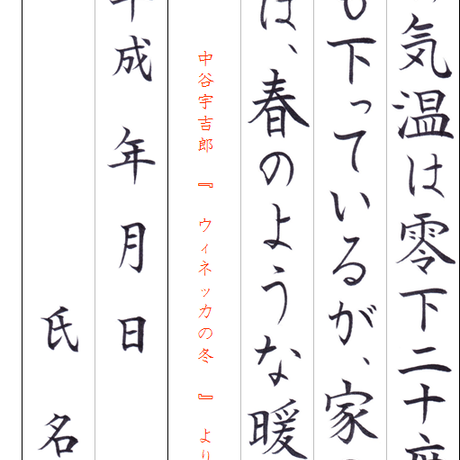 気温は零下二十度
も下っているが、家
は、春のような暖
中谷宇吉郎 『 ウィネッカの冬 』 より
平成 年 月 日
氏 名